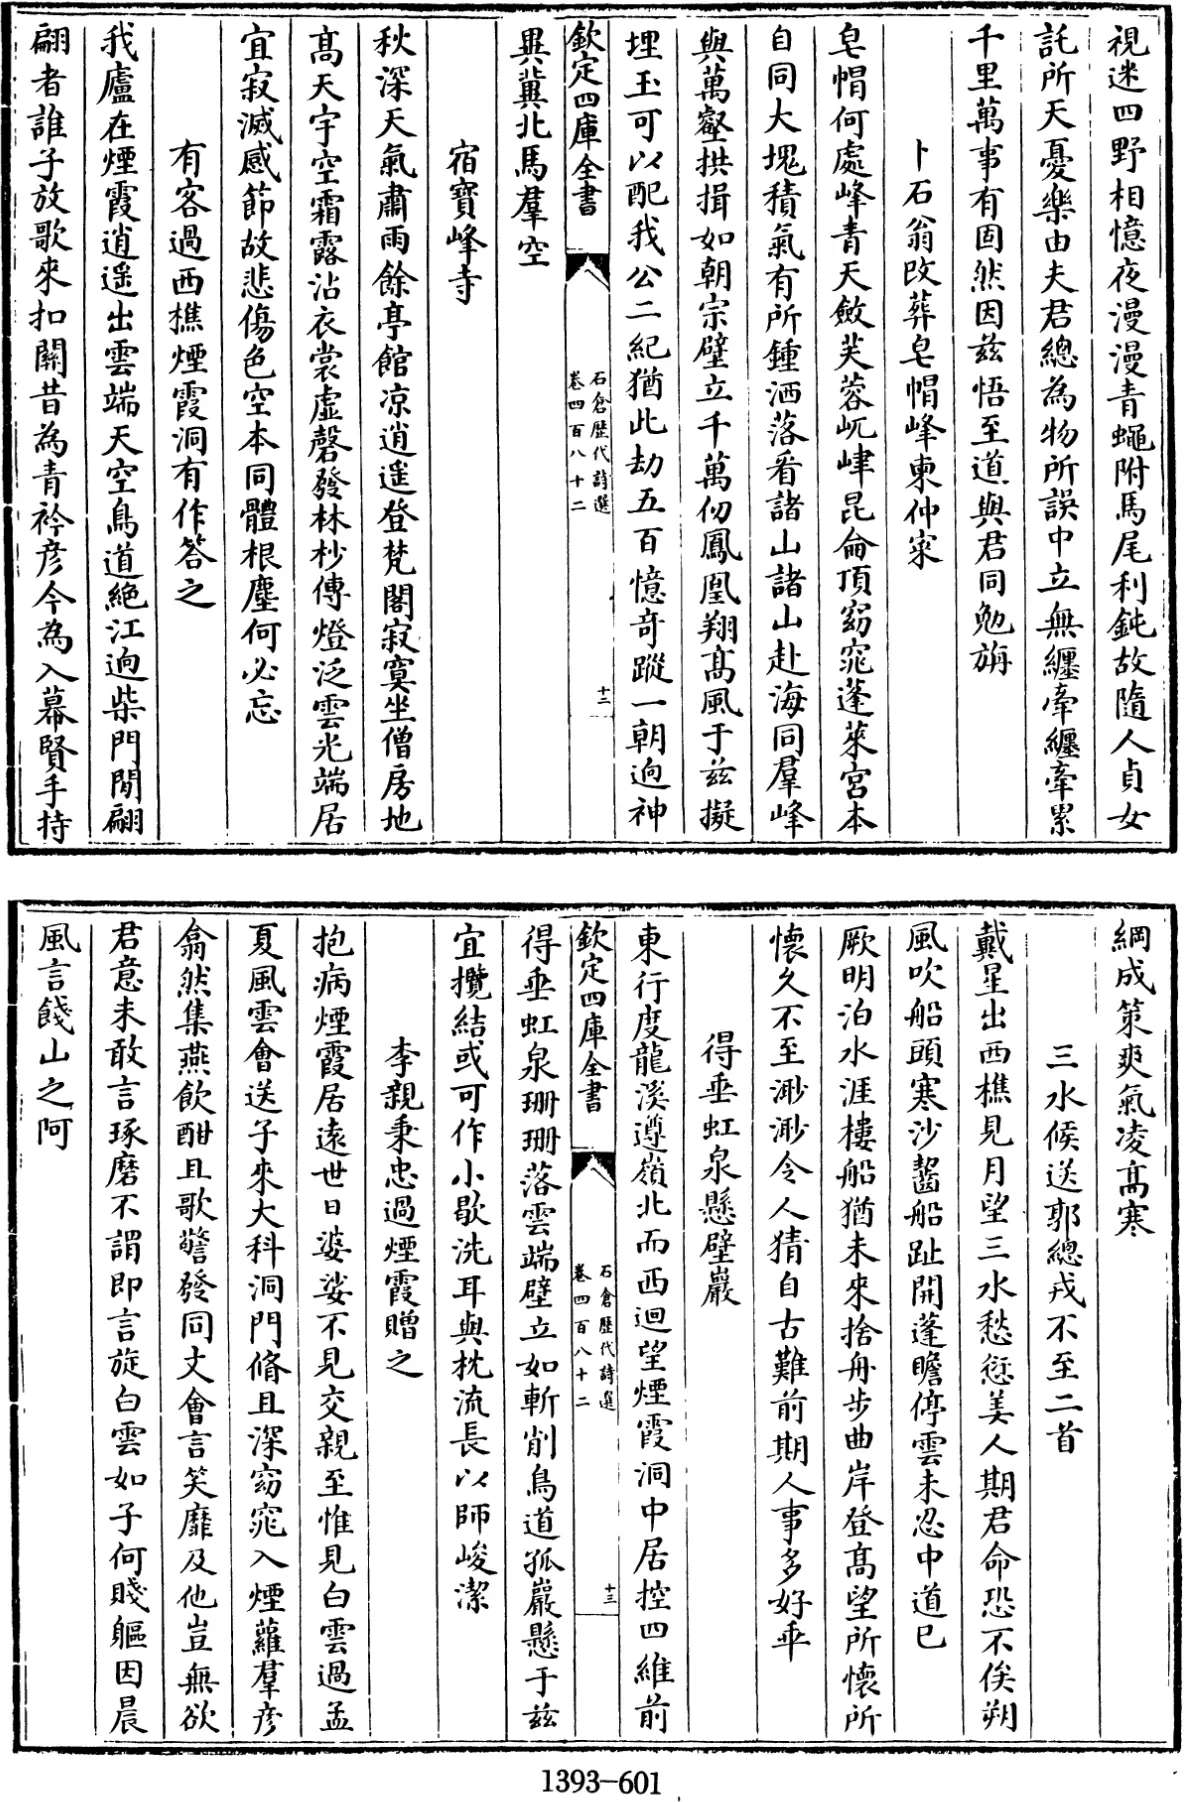 視迷四野相憶夜漫漫青蠅附馬尾利鈍故隨人貞女
託所天憂樂由夫君總為物所誤中立無纏牽纏牽累
千里萬事有固然因兹悟至道與君同勉旃
卜石翁改葬皂帽峰柬仲寀
皂帽何處峰青天斂芙蓉屼崒昆侖頂窈窕蓬萊宮本
自同大塊積氣有所鍾洒落看諸山諸山赴海同羣峰
與萬壑拱揖如朝宗壁立千萬仞鳳凰翔高風于兹擬
埋玉可以配我公二紀猶此劫五百憶奇蹤一朝逈神
欽定四庫全書
石倉歷代詩選
卷四百八十二
十二
異冀北馬羣空
宿寶峰寺
秋深天氣肅雨餘亭館凉逍遥登梵閣寂寞坐僧房地
高天宇空霜露沾衣裳虛磬發林杪傳燈泛雲光端居
宜寂滅感節故悲傷色空本同體根塵何必忘
有客過西樵煙霞洞有作答之
我廬在煙霞逍遥出雲端天空鳥道絶江逈柴門閒翩
翩者誰子放歌來扣關昔為青衿彦今為入幕賢手持
綱成策爽氣凌高寒
三水候送郭總戎不至二首
戴星出西樵見月望三水愁愆美人期君命恐不俟朔
風吹船頭寒沙齧船趾開蓬瞻停雲未忍中道已
厥明泊水涯樓船猶未來捨舟步曲岸登高望所懷所
懷久不至渺渺令人猜自古難前期人事多好乖
得垂虹泉懸壁巖
東行度龍溪遵嶺北而西迴望煙霞洞中居控四維前
欽定四庫全書
石倉歷代詩選
卷四百八十二
十三
得垂虹泉珊珊落雲端壁立如斬削鳥道孤巖懸于兹
宜攬結或可作小歇洗耳與枕流長以師峻潔
李親秉忠過煙霞贈之
抱病煙霞居遠世日婆娑不見交親至惟見白雲過孟
夏風雲會送子來大科洞門脩且深窈窕入煙蘿羣彦
翕然集燕飲酣且歌警發同丈會言笑靡及他豈無欲
君意未敢言琢磨不謂即言旋白雲如子何賤軀因晨
風言餞山之阿
1393-601